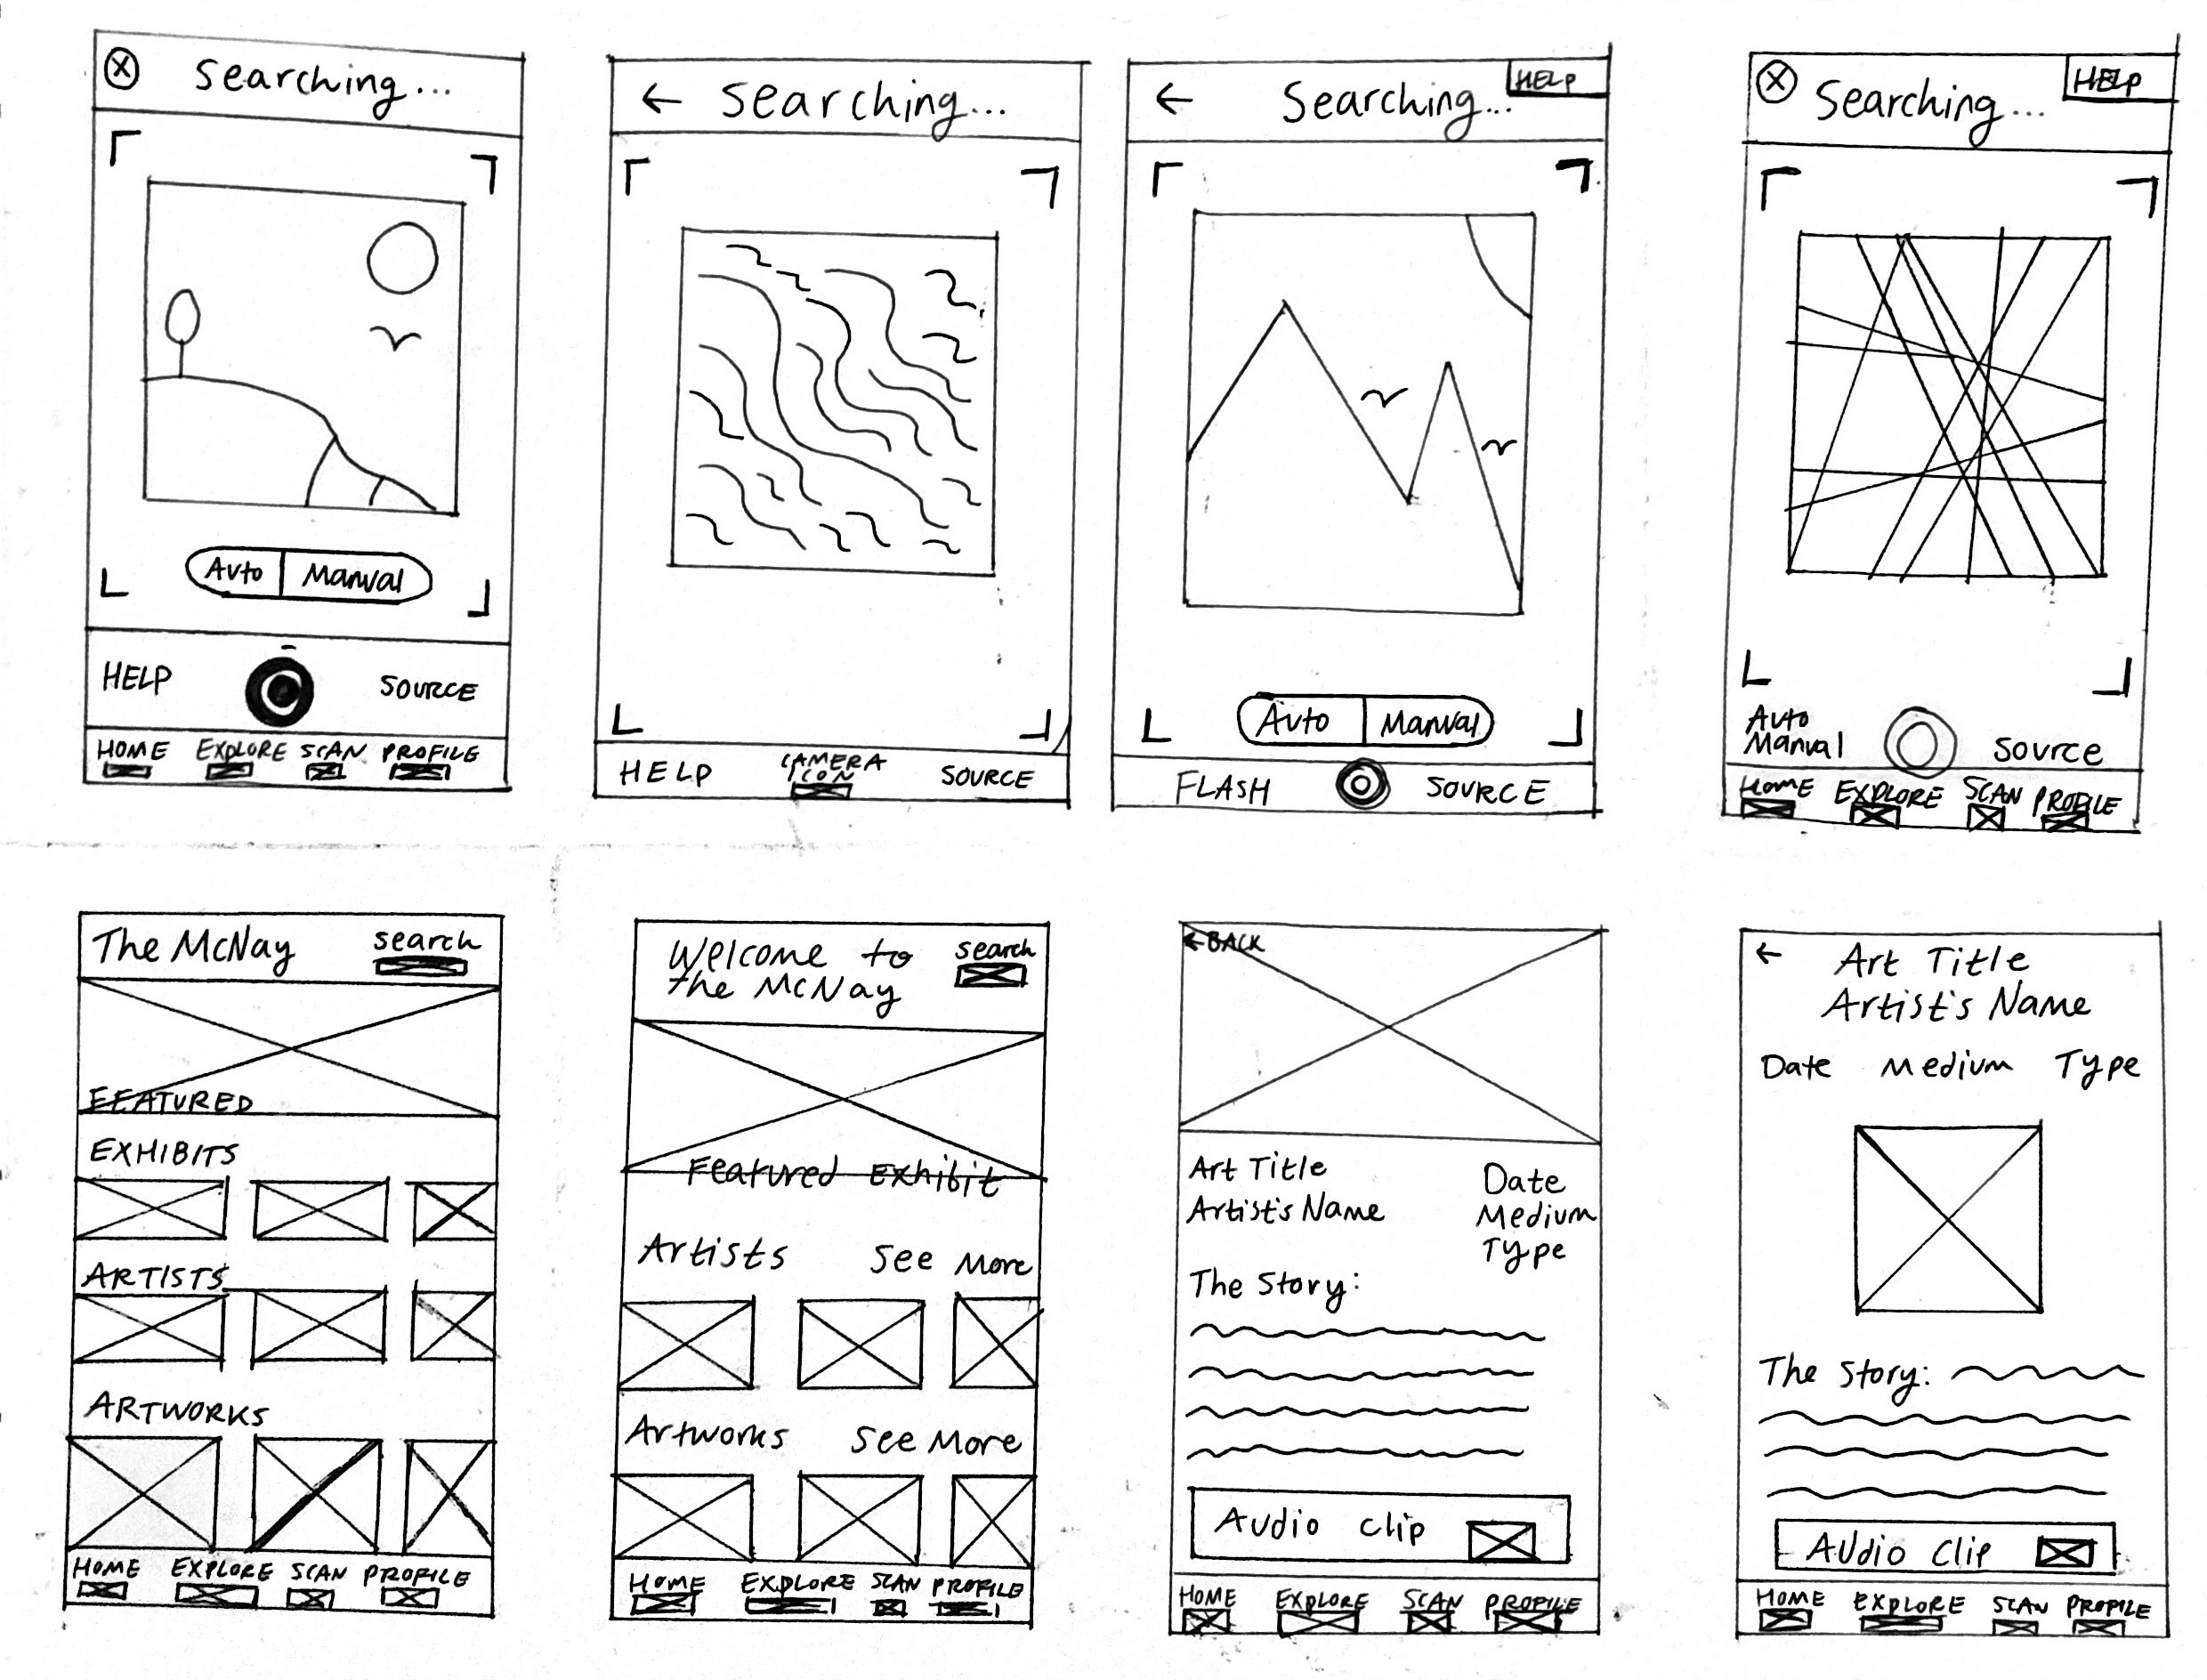 Searching...
Auto Manual
HELP SOURCE
HOME EXPLORE SCAN PROFILE
← Searching...
HELP CAMERA ICON SOURCE
← Searching...
HELP
Auto Manual
FLASH SOURCE
Searching...
HELP
Auto
Manual
Source
HOME EXPLORE SCAN PROFILE
The McNay search
FEATURED
EXHIBITS
ARTISTS
ARTWORKS
HOME EXPLORE SCAN PROFILE
Welcome to
the McNay
search
Featured Exhibit
Artists See More
Artworks See More
HOME EXPLORE SCAN PROFILE
← BACK
Art Title
Artist's Name
Date
Medium
Type
The Story:
Audio Clip
HOME EXPLORE SCAN PROFILE
← Art Title
Artist's Name
Date Medium Type
The Story:
Audio Clip
HOME EXPLORE SCAN PROFILE